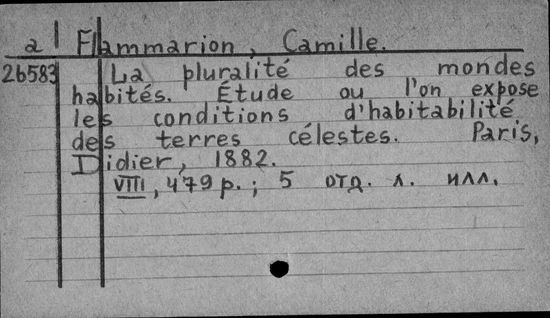 a Flammarion, Camille.
26583 La pluralité des mondes
habités. Étude ou l'on expose
les conditions d'habitabilité
des terres célestes. Paris,
Didier, 1882.
VIII, 479 p.; 5 отд. л. илл.